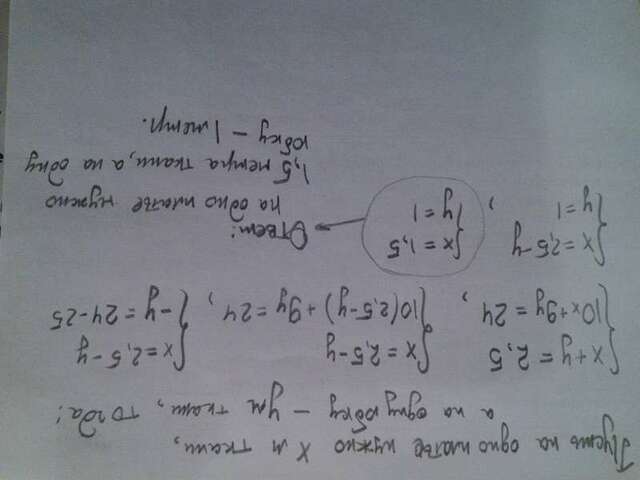 Пусть на одно платье нужно x м ткани,
а на одну юбку – y м ткани, тогда:
{x+y=2,5
10x+9y=24, {x=2,5-y
10(2,5-y)+9y=24, {x=2,5-y
-y=24-25
{x=2,5-y
y=1, {x=1,5
y=1 → Ответ:
на одно платье нужно
1,5 метра ткани, а на одну
юбку – 1 метр.